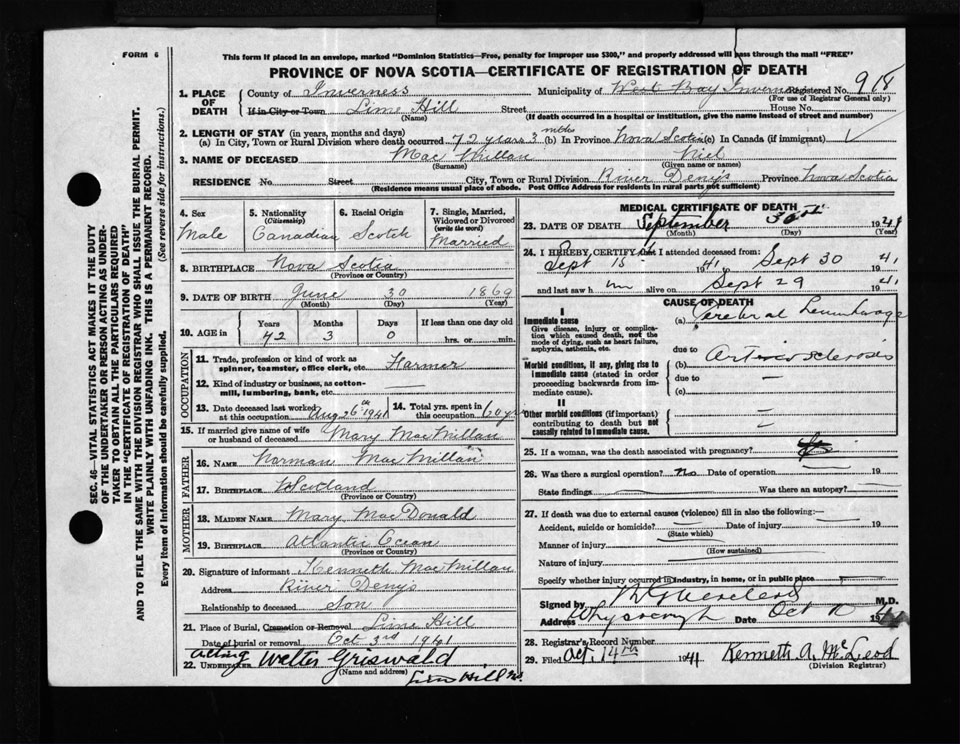 FORM 6
This form if placed in an envelope, marked "Dominion Statistics—Free, penalty for improper use $300," and properly addressed will pass through the mail "FREE"
PROVINCE OF NOVA SCOTIA—CERTIFICATE OF REGISTRATION OF DEATH
SEC. 46—VITAL STATISTICS ACT MAKES IT THE DUTY
OF THE UNDERTAKER OR PERSON ACTING AS UNDER-
TAKER TO OBTAIN ALL THE PARTICULARS REQUIRED
IN THE "CERTIFICATE OF REGISTRATION OF DEATH"
AND TO FILE THE SAME WITH THE DIVISION REGISTRAR WHO SHALL ISSUE THE BURIAL PERMIT.
WRITE PLAINLY WITH UNFADING INK. THIS IS A PERMANENT RECORD.
Every item of information should be carefully supplied. (See reverse side for instructions.)
1. PLACE OF DEATH County of Inverness Municipality of West Bay Inverness Registered No. 918
(For use of Registrar General only)
If in City or Town Lime Hill Street House No.
(Name) (If death occurred in a hospital or institution, give the name instead of street and number)
2. LENGTH OF STAY (in years, months and days)
(a) In City, Town or Rural Division where death occurred 72 years 3 mths (b) In Province Nova Scotia (c) In Canada (if immigrant)
3. NAME OF DECEASED Mac Millan Niel
(Surname) (Given name or names)
RESIDENCE No. Street City, Town or Rural Division River Denys Province Nova Scotia
(Residence means usual place of abode. Post Office Address for residents in rural parts not sufficient)
4. Sex Male
5. Nationality (Citizenship) Canadian
6. Racial Origin Scotch
7. Single, Married, Widowed or Divorced (write the word) Married
8. BIRTHPLACE Nova Scotia
(Province or Country)
9. DATE OF BIRTH June 30 1869
(Month) (Day) (Year)
10. AGE in Years Months Days If less than one day old
72 3 0 hrs. or min.
OCCUPATION
11. Trade, profession or kind of work as spinner, teamster, office clerk, etc. Farmer
12. Kind of industry or business, as cotton-mill, lumbering, bank, etc.
13. Date deceased last worked at this occupation Aug 26th 1941
14. Total yrs. spent in this occupation 60 yrs
15. If married give name of wife or husband of deceased Mary MacMillan
FATHER
16. NAME Norman MacMillan
17. BIRTHPLACE Scotland
(Province or Country)
MOTHER
18. MAIDEN NAME Mary MacDonald
19. BIRTHPLACE Atlantic Ocean
(Province or Country)
20. Signature of informant Kenneth MacMillan
Address River Denys
Relationship to deceased Son
21. Place of Burial, Cremation or Removal Lime Hill
Date of burial or removal Oct 3rd 1941
22. UNDERTAKER Acting Walter Griswald
(Name and address) Lime Hill
MEDICAL CERTIFICATE OF DEATH
23. DATE OF DEATH September 30th 1941
(Month) (Day) (Year)
24. I HEREBY CERTIFY that I attended deceased from:
Sept 15 1941 Sept 30 1941
and last saw him alive on Sept 29 1941
CAUSE OF DEATH
I
Immediate cause
Give disease, injury or complication which caused death, not the mode of dying, such as heart failure, asphyxia, asthenia, etc.
(a) Cerebral Hemorrhage
due to
Morbid conditions, if any, giving rise to immediate cause (stated in order proceeding backwards from immediate cause).
(b) Arteriosclerosis
due to —
(c)
II
Other morbid conditions (if important) contributing to death but not causally related to immediate cause.
25. If a woman, was the death associated with pregnancy?
26. Was there a surgical operation? no Date of operation 19
State findings Was there an autopsy?
27. If death was due to external causes (violence) fill in also the following:—
Accident, suicide or homicide? Date of injury 19
(State which)
Manner of injury
(How sustained)
Nature of injury
Specify whether injury occurred in industry, in home, or in public place
Signed by M.D.
Address Whycocomagh Date Oct 19
28. Registrar's Record Number
29. Filed Oct. 14th 1941 Kenneth A. McLeod
(Division Registrar)